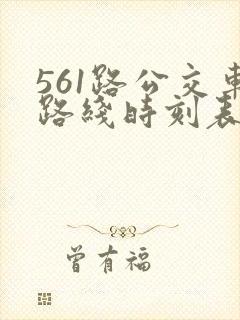 561路公交車
路綫時刻表
曾有福